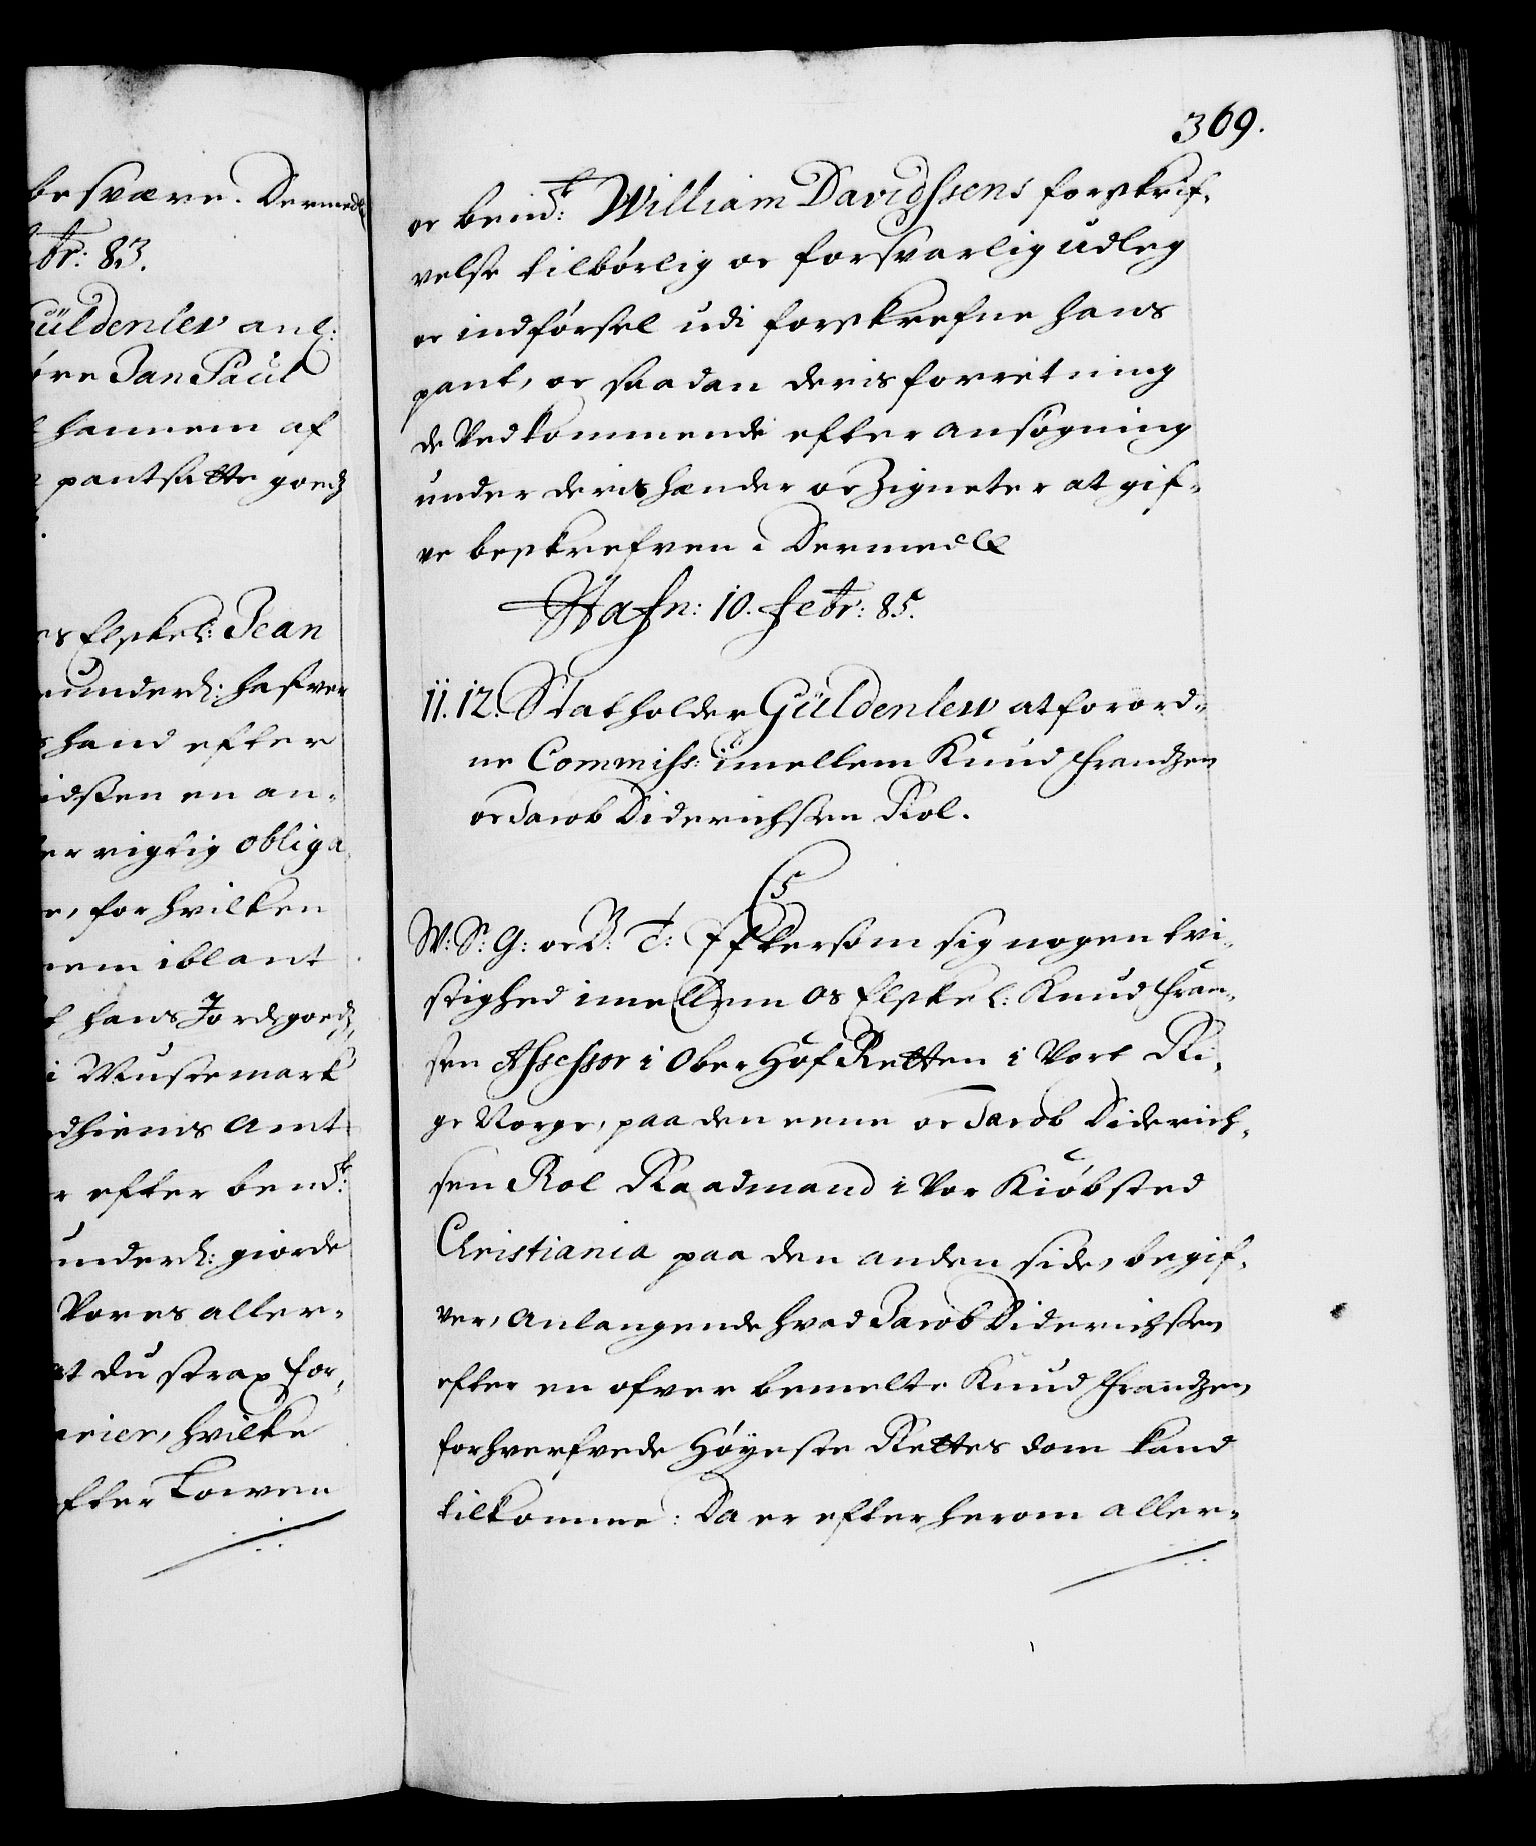 besvære. Dermed
br: 83.
Güldenlev anl:
øre Jan Paul
hannem af
pantsatte goedz
os Elskel: Jean
underd: hafver
hand efter
idssen en an-
er rigtig obliga-
, for hvilken
nem iblant
hans Jordegoedz
i Mustemark
dhiems Amt
r efter bemd:te
underd: giorde
Vores aller-
at du strax for-
arier, hvilke
efter Lowen
369.
oc bemd:te William Davidssens forskrif-
velse tilbørlig oc forsvarlig udleg
oc indførsel udi forskrefne hans
pant, oc saadan deris forretning
de Vedkommende efter ansøgning
under deris hænder oc Zigneter at gif-
ve beskrefven. Dermed etc
Hafn: 10. Febr: 85.
11. 12. Statholder Güldenlew at forord-
ne Commiss: imellem Knud Frandzen
oc Jacob Diderichsen Rol.
C5
W: S: G: oc B: T: Efftersom sig nogen tvi-
stighed imellem os Elskel: Knud Fran-
sen Assessor i Ober Hof Retten i Vort Ri-
ge Norge, paa den eene oc Jacob Diderich-
sen Rol Raadmand i Vor Kiøbsted
Christiania paa den anden side, begif-
ver, Anlangende hvad Jacob Diderichsen
efter en ofverbemelte Knud Frandzen
forhverfvede Høyeste Rettes dom kand
tilkomme: Da er efter herom aller-